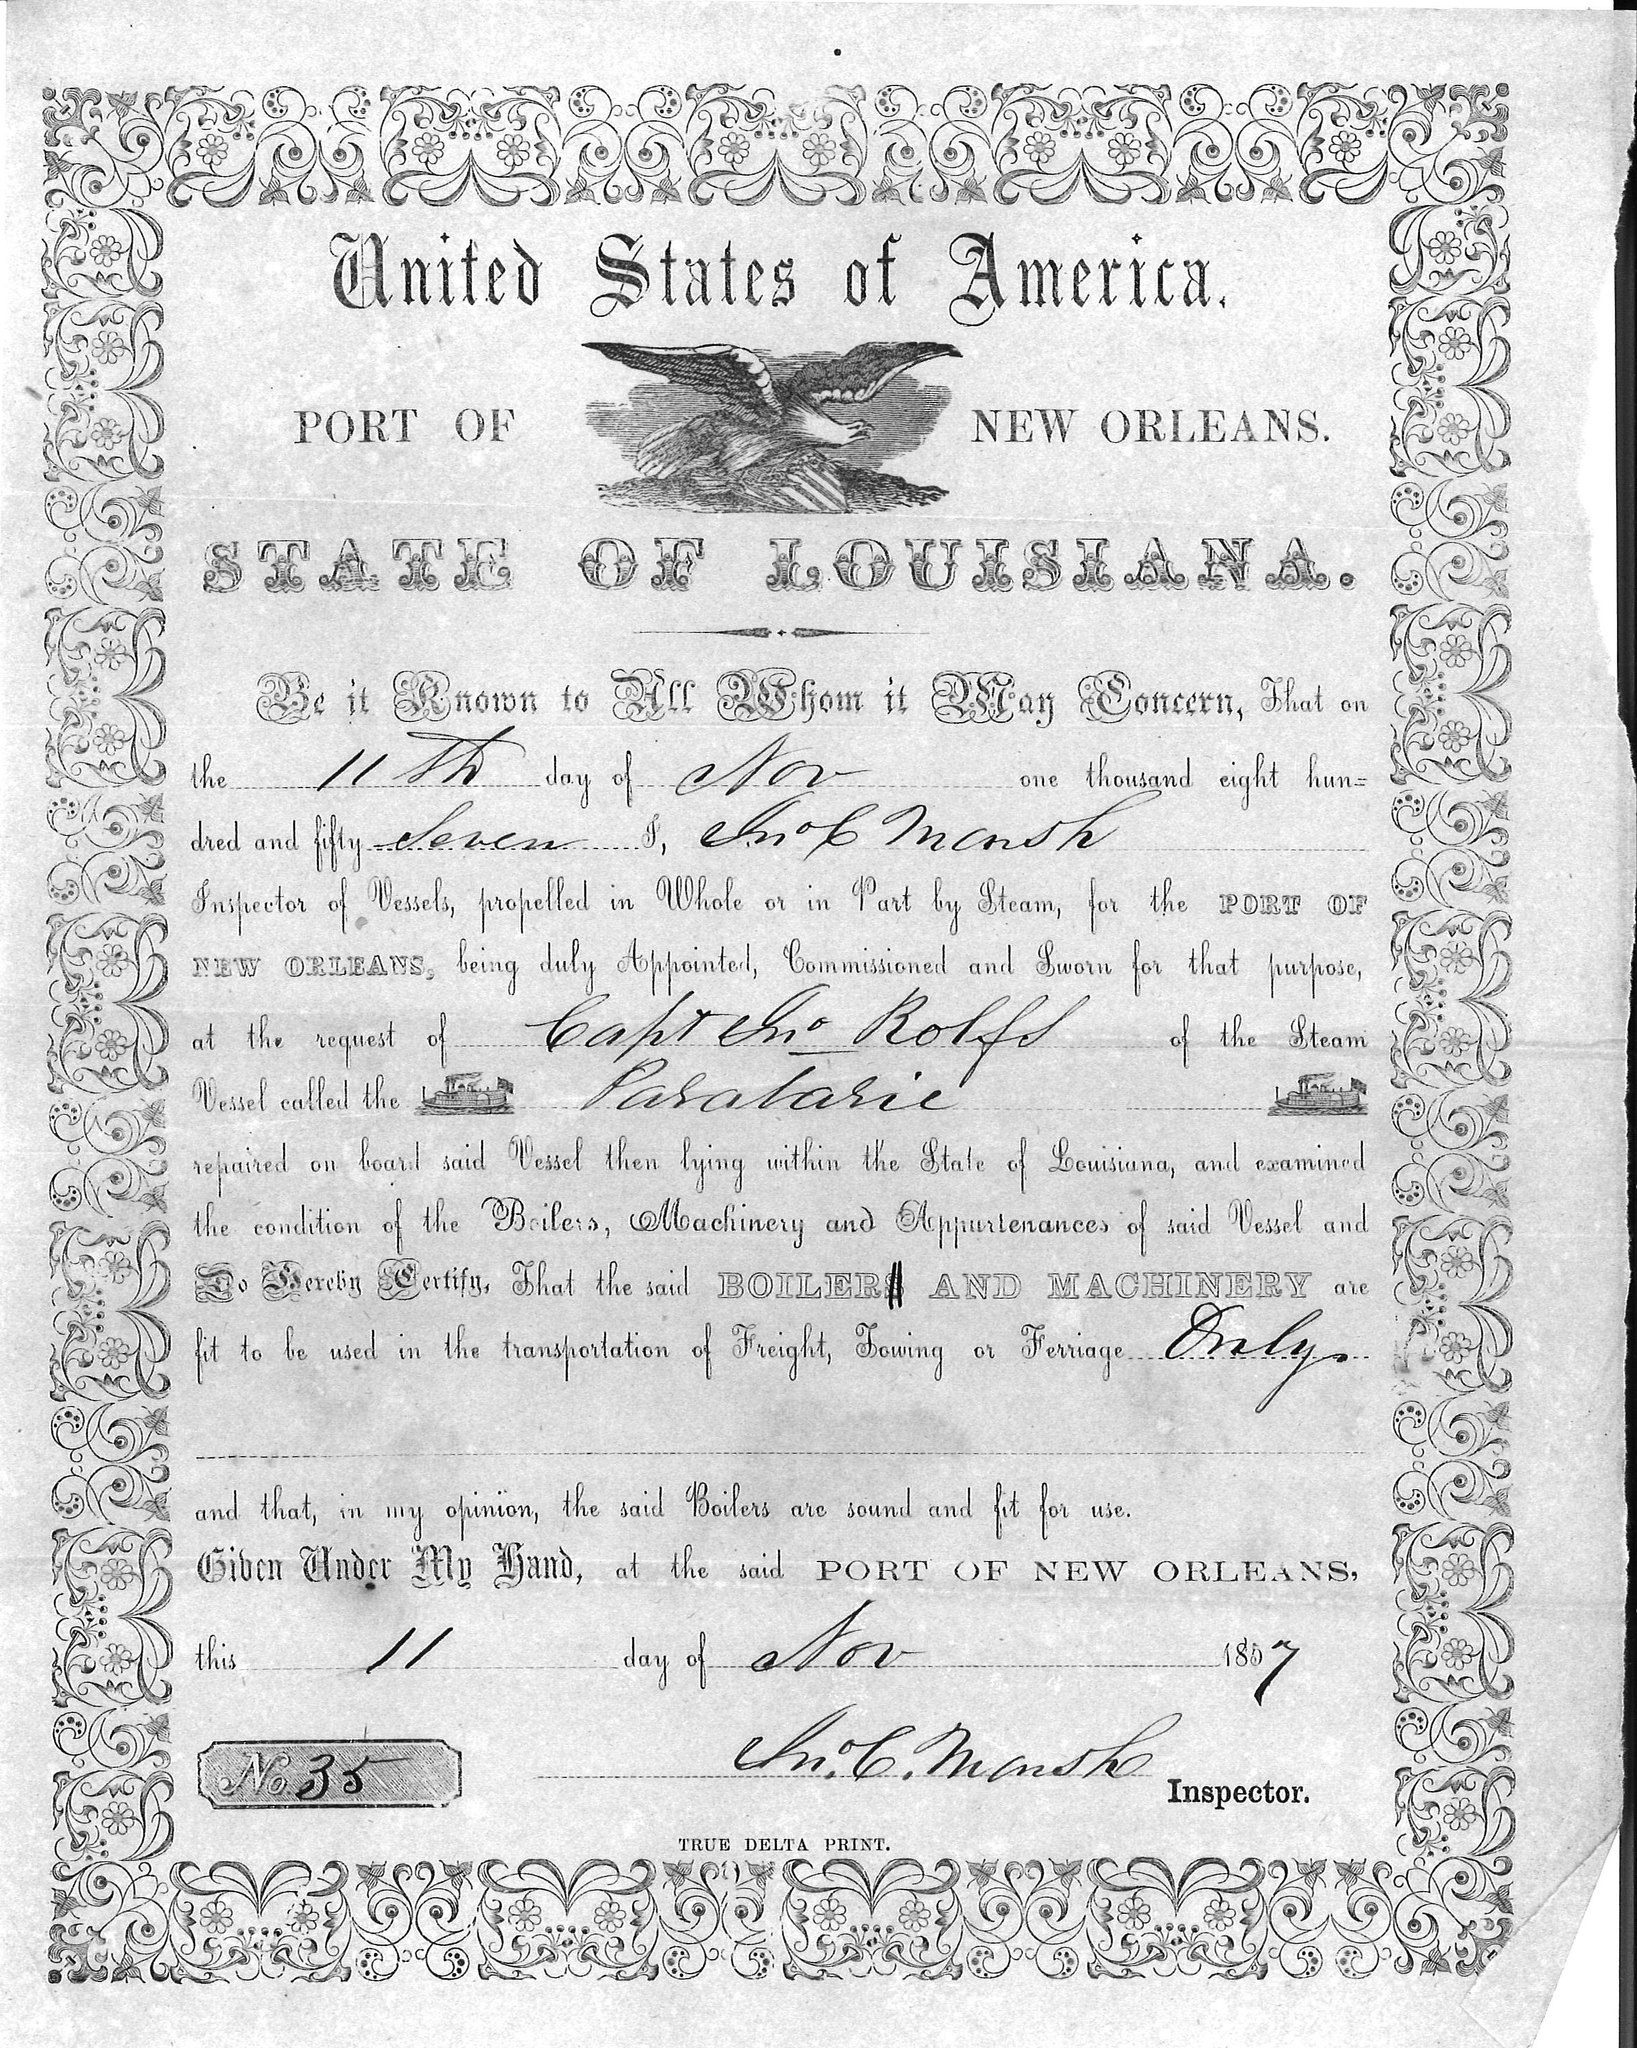 United States of America.
PORT OF NEW ORLEANS.
STATE OF LOUISIANA.
Be it Known to All Whom it May Concern, That on
the 11th day of Nov one thousand eight hun-
dred and fifty Seven I, Jno C Marsh
Inspector of Vessels, propelled in Whole or in Part by Steam, for the PORT OF
NEW ORLEANS, being duly Appointed, Commissioned and Sworn for that purpose,
at the request of Capt Jno Rolffs of the Steam
Vessel called the
repaired on board said Vessel then lying within the State of Louisiana, and examined
the condition of the Boilers, Machinery and Appurtenances of said Vessel and
Do Hereby Certify, That the said BOILER AND MACHINERY are
fit to be used in the transportation of Freight, Towing or Ferriage Only.
and that, in my opinion, the said Boilers are sound and fit for use.
Given Under My Hand, at the said PORT OF NEW ORLEANS,
this 11 day of Nov 1857
No. 35 Jno. C. Marsh Inspector.
TRUE DELTA PRINT.